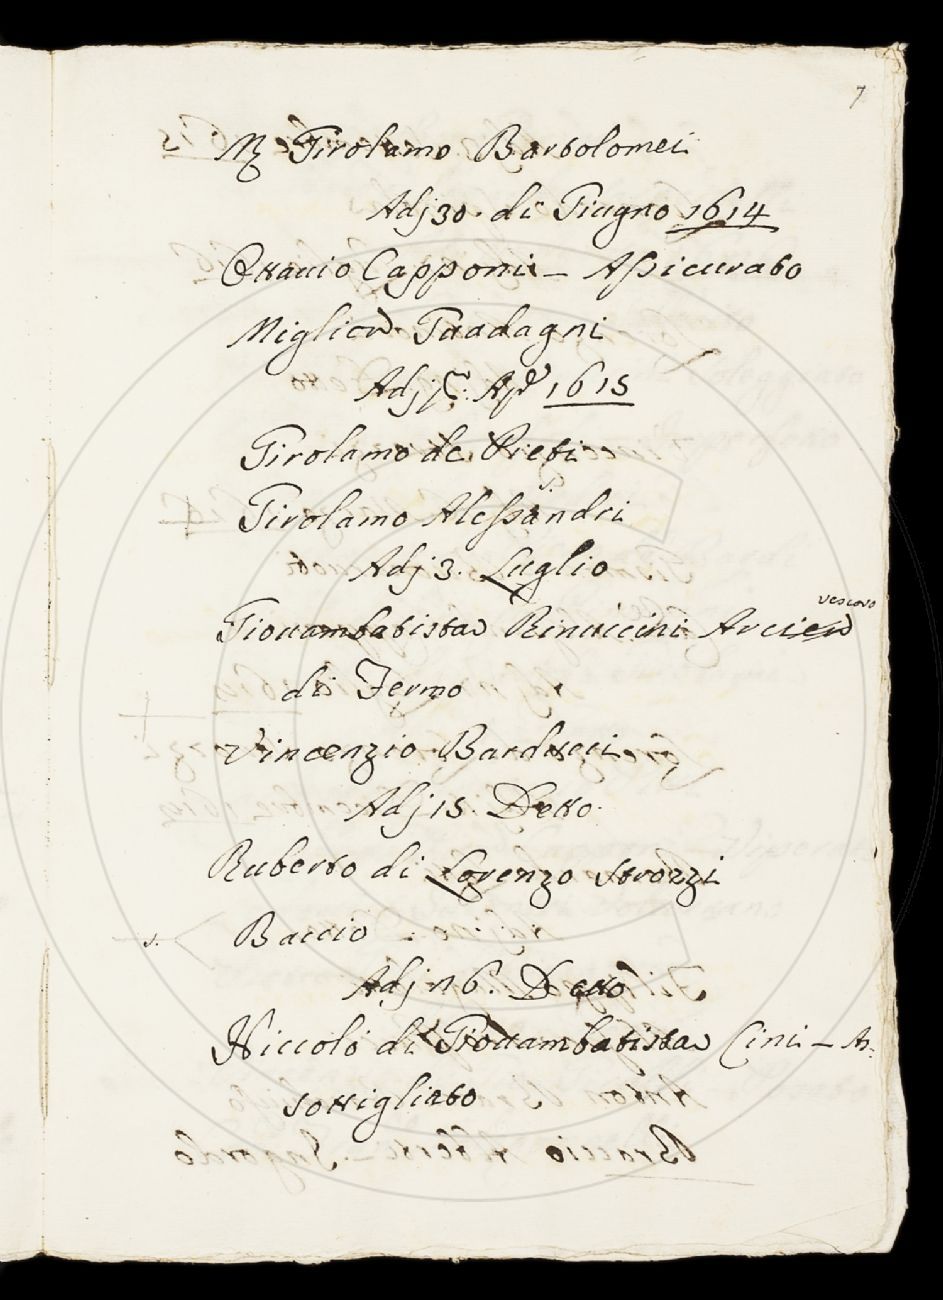 7
M. Girolamo Bartolomei
Adj 30. di Giugno 1614
Ottauio Capponi – Assicurato
Migliore Guadagni
Adj p.º Ap.e 1615
Girolamo de Preti
Girolamo Alessandri
Adj 3. Luglio
Giouambatista Rinuccini Arcivescovo
di Fermo
Vincenzio Barducci
Adj 15. Detto
Ruberto di Lorenzo Strozzi
s. Baccio
Adj 16. Detto
Niccolò di Giouambatista Cini – As-
sottigliato